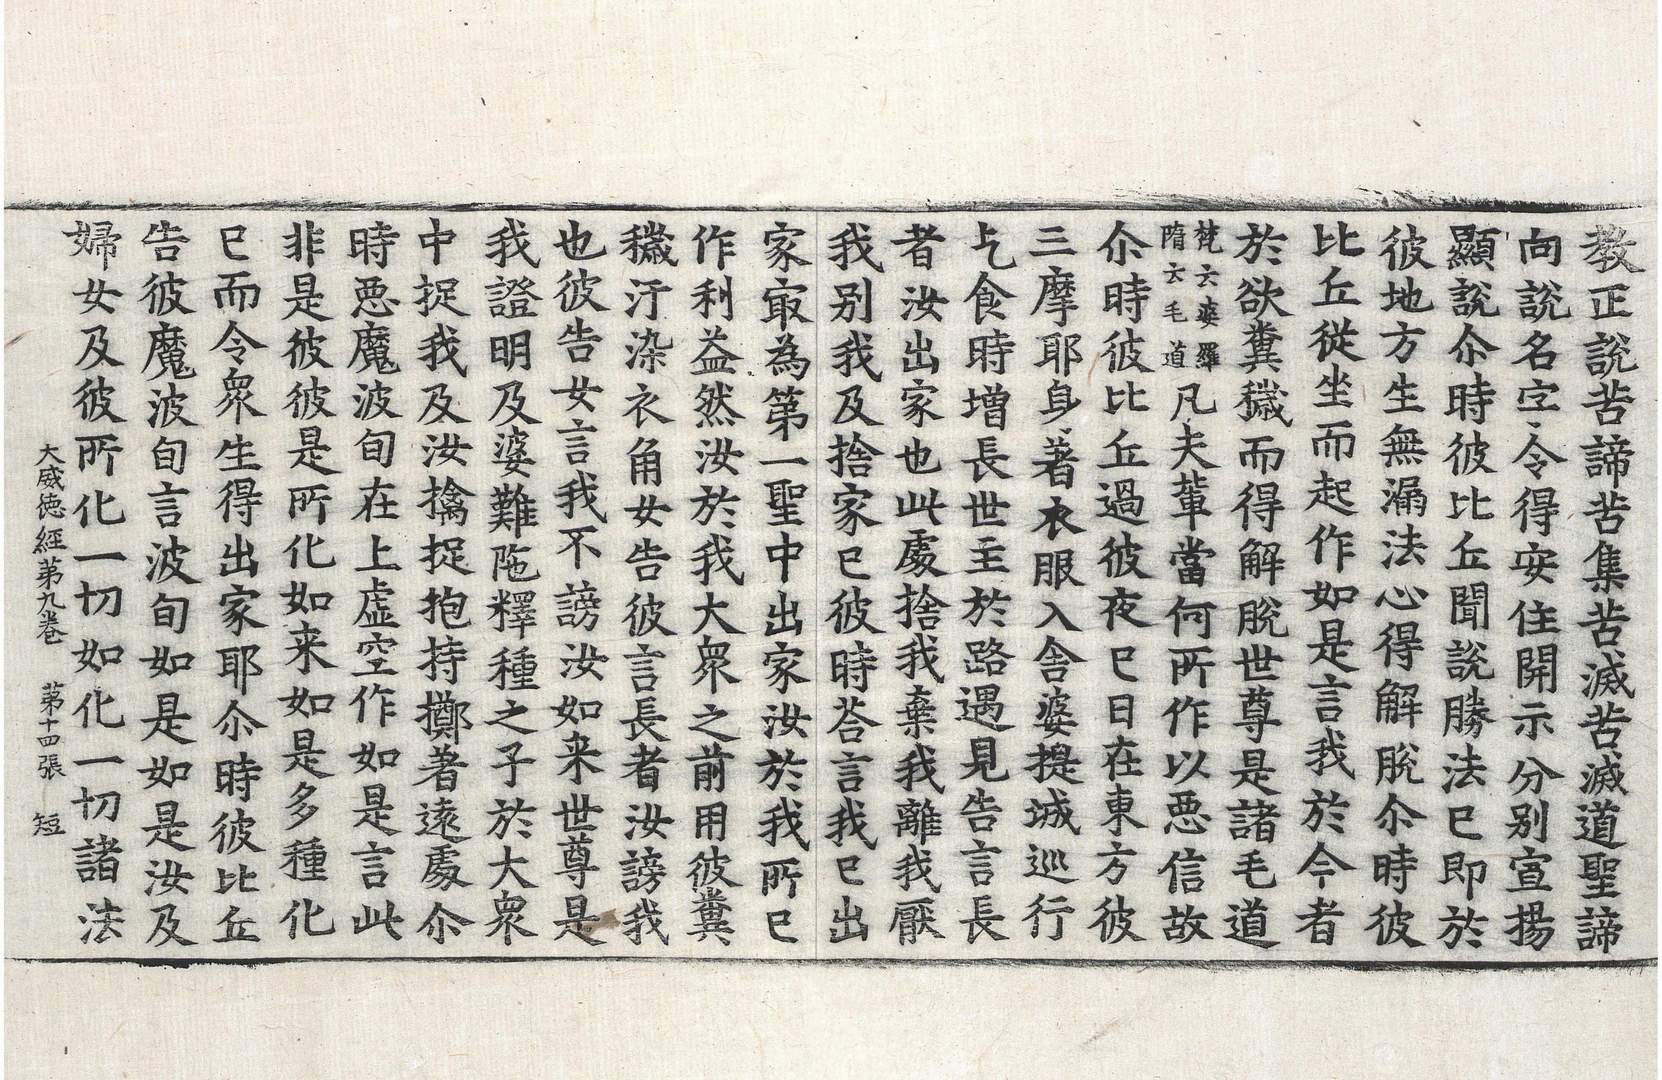 教正說苦諦苦集苦滅苦滅道聖諦
向說名字令得安住開示分別宣揚
顯說尒時彼比丘聞說勝法已即於
彼地方生無漏法心得解脫尒時彼
比丘從坐而起作如是言我於今者
於欲糞穢而得解脫世尊是諸毛道
梵云婆羅隋云毛道凡夫輩當何所作以惡信故
尒時彼比丘過彼夜已日在東方彼
三摩耶身著衣服入舍婆提城巡行
乞食時增長世主於路遇見告言長
者汝出家也此處捨我棄我離我厭
我別我及捨家已彼時荅言我已出
家㝡為第一聖中出家汝於我所已
作利益然汝於我大眾之前用彼糞
穢汙染衣角女告彼言長者汝謗我
也彼告女言我不謗汝如来世尊是
我證明及婆難陁釋種之子於大眾
中捉我及汝擒捉抱持擲著遠處尒
時惡魔波旬在上虛空作如是言此
非是彼彼是所化如来如是多種化
已而令眾生得出家耶尒時彼比丘
告彼魔波旬言波旬如是如是汝及
婦女及彼所化一切如化一切諸法
大威德經第九卷　第十四張　短